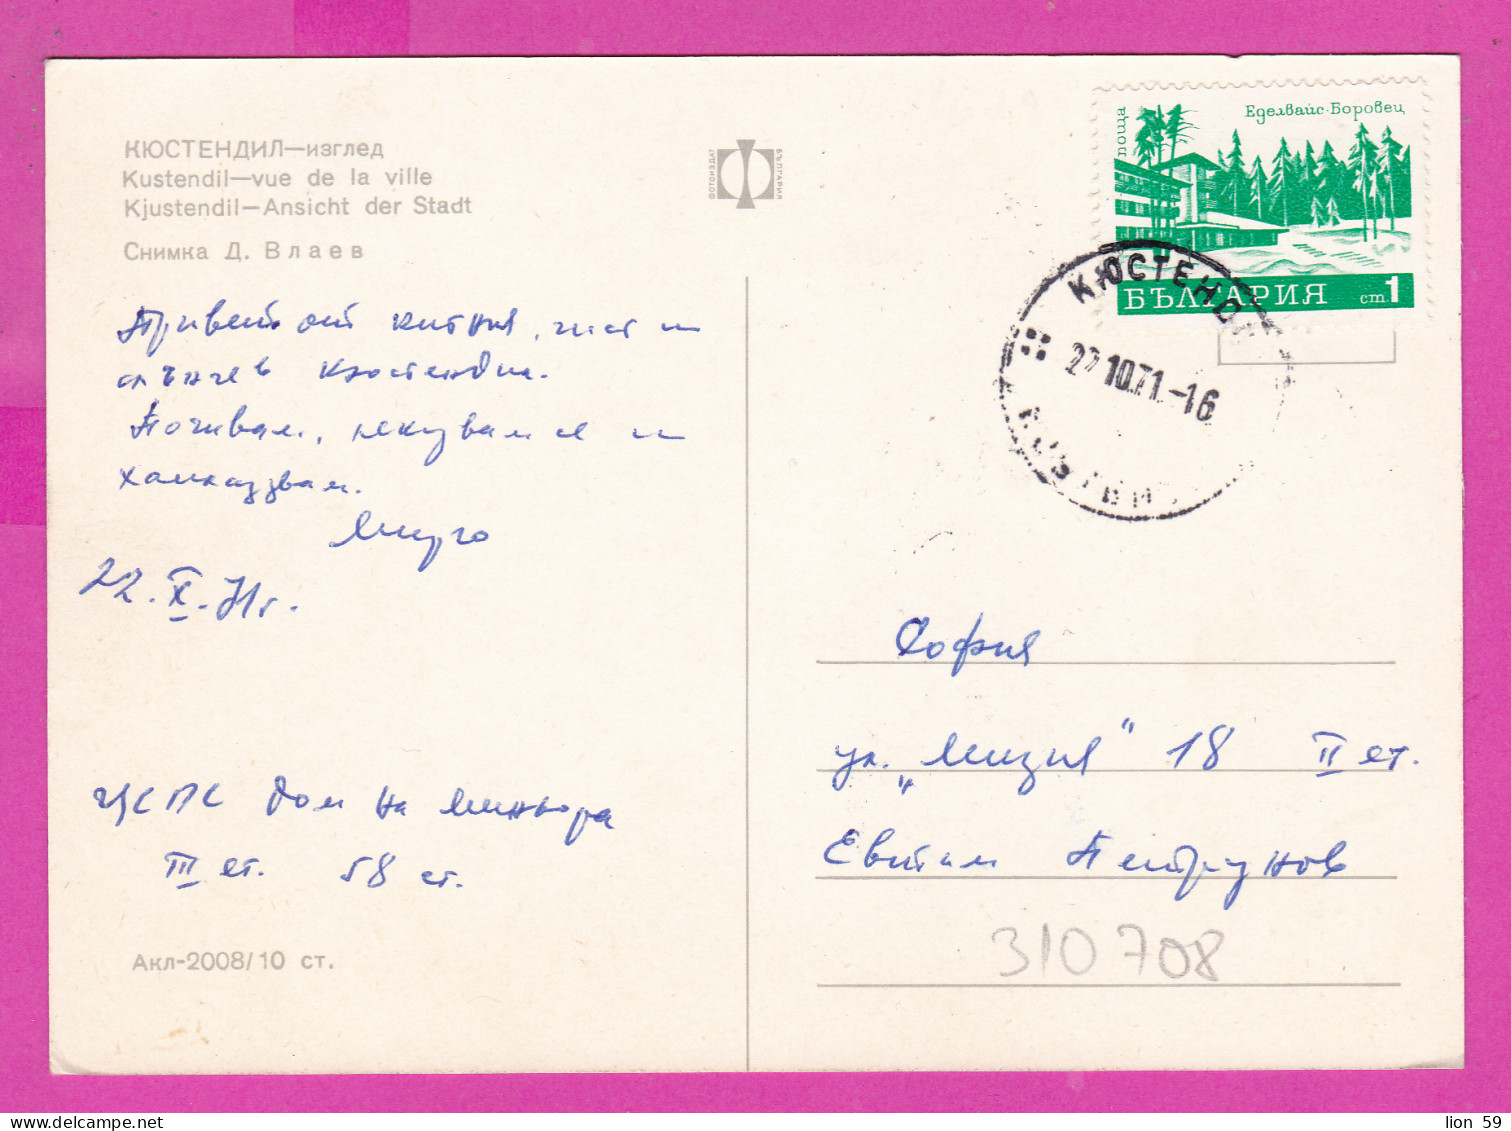 КЮСТЕНДИЛ—изглед
Kustendil—vue de la ville
Kjustendil—Ansicht der Stadt
Снимка Д. Влаев
ФОТОИЗДАТ
БЪЛГАРИЯ
поща
Еделвайс·Боровец
БЪЛГАРИЯ ст 1
КЮСТЕНД
10.71.-16
Привет от китния, чист и
слънчев Кюстендил.
Почивам, лекувам се и
22.X.71г.
София
ул. „Мизия“ 18 II ет.
Евтим
ЦСПС Дом на миньора
III ет. 58 ст.
310708
Акл-2008/10 ст.
lion 59